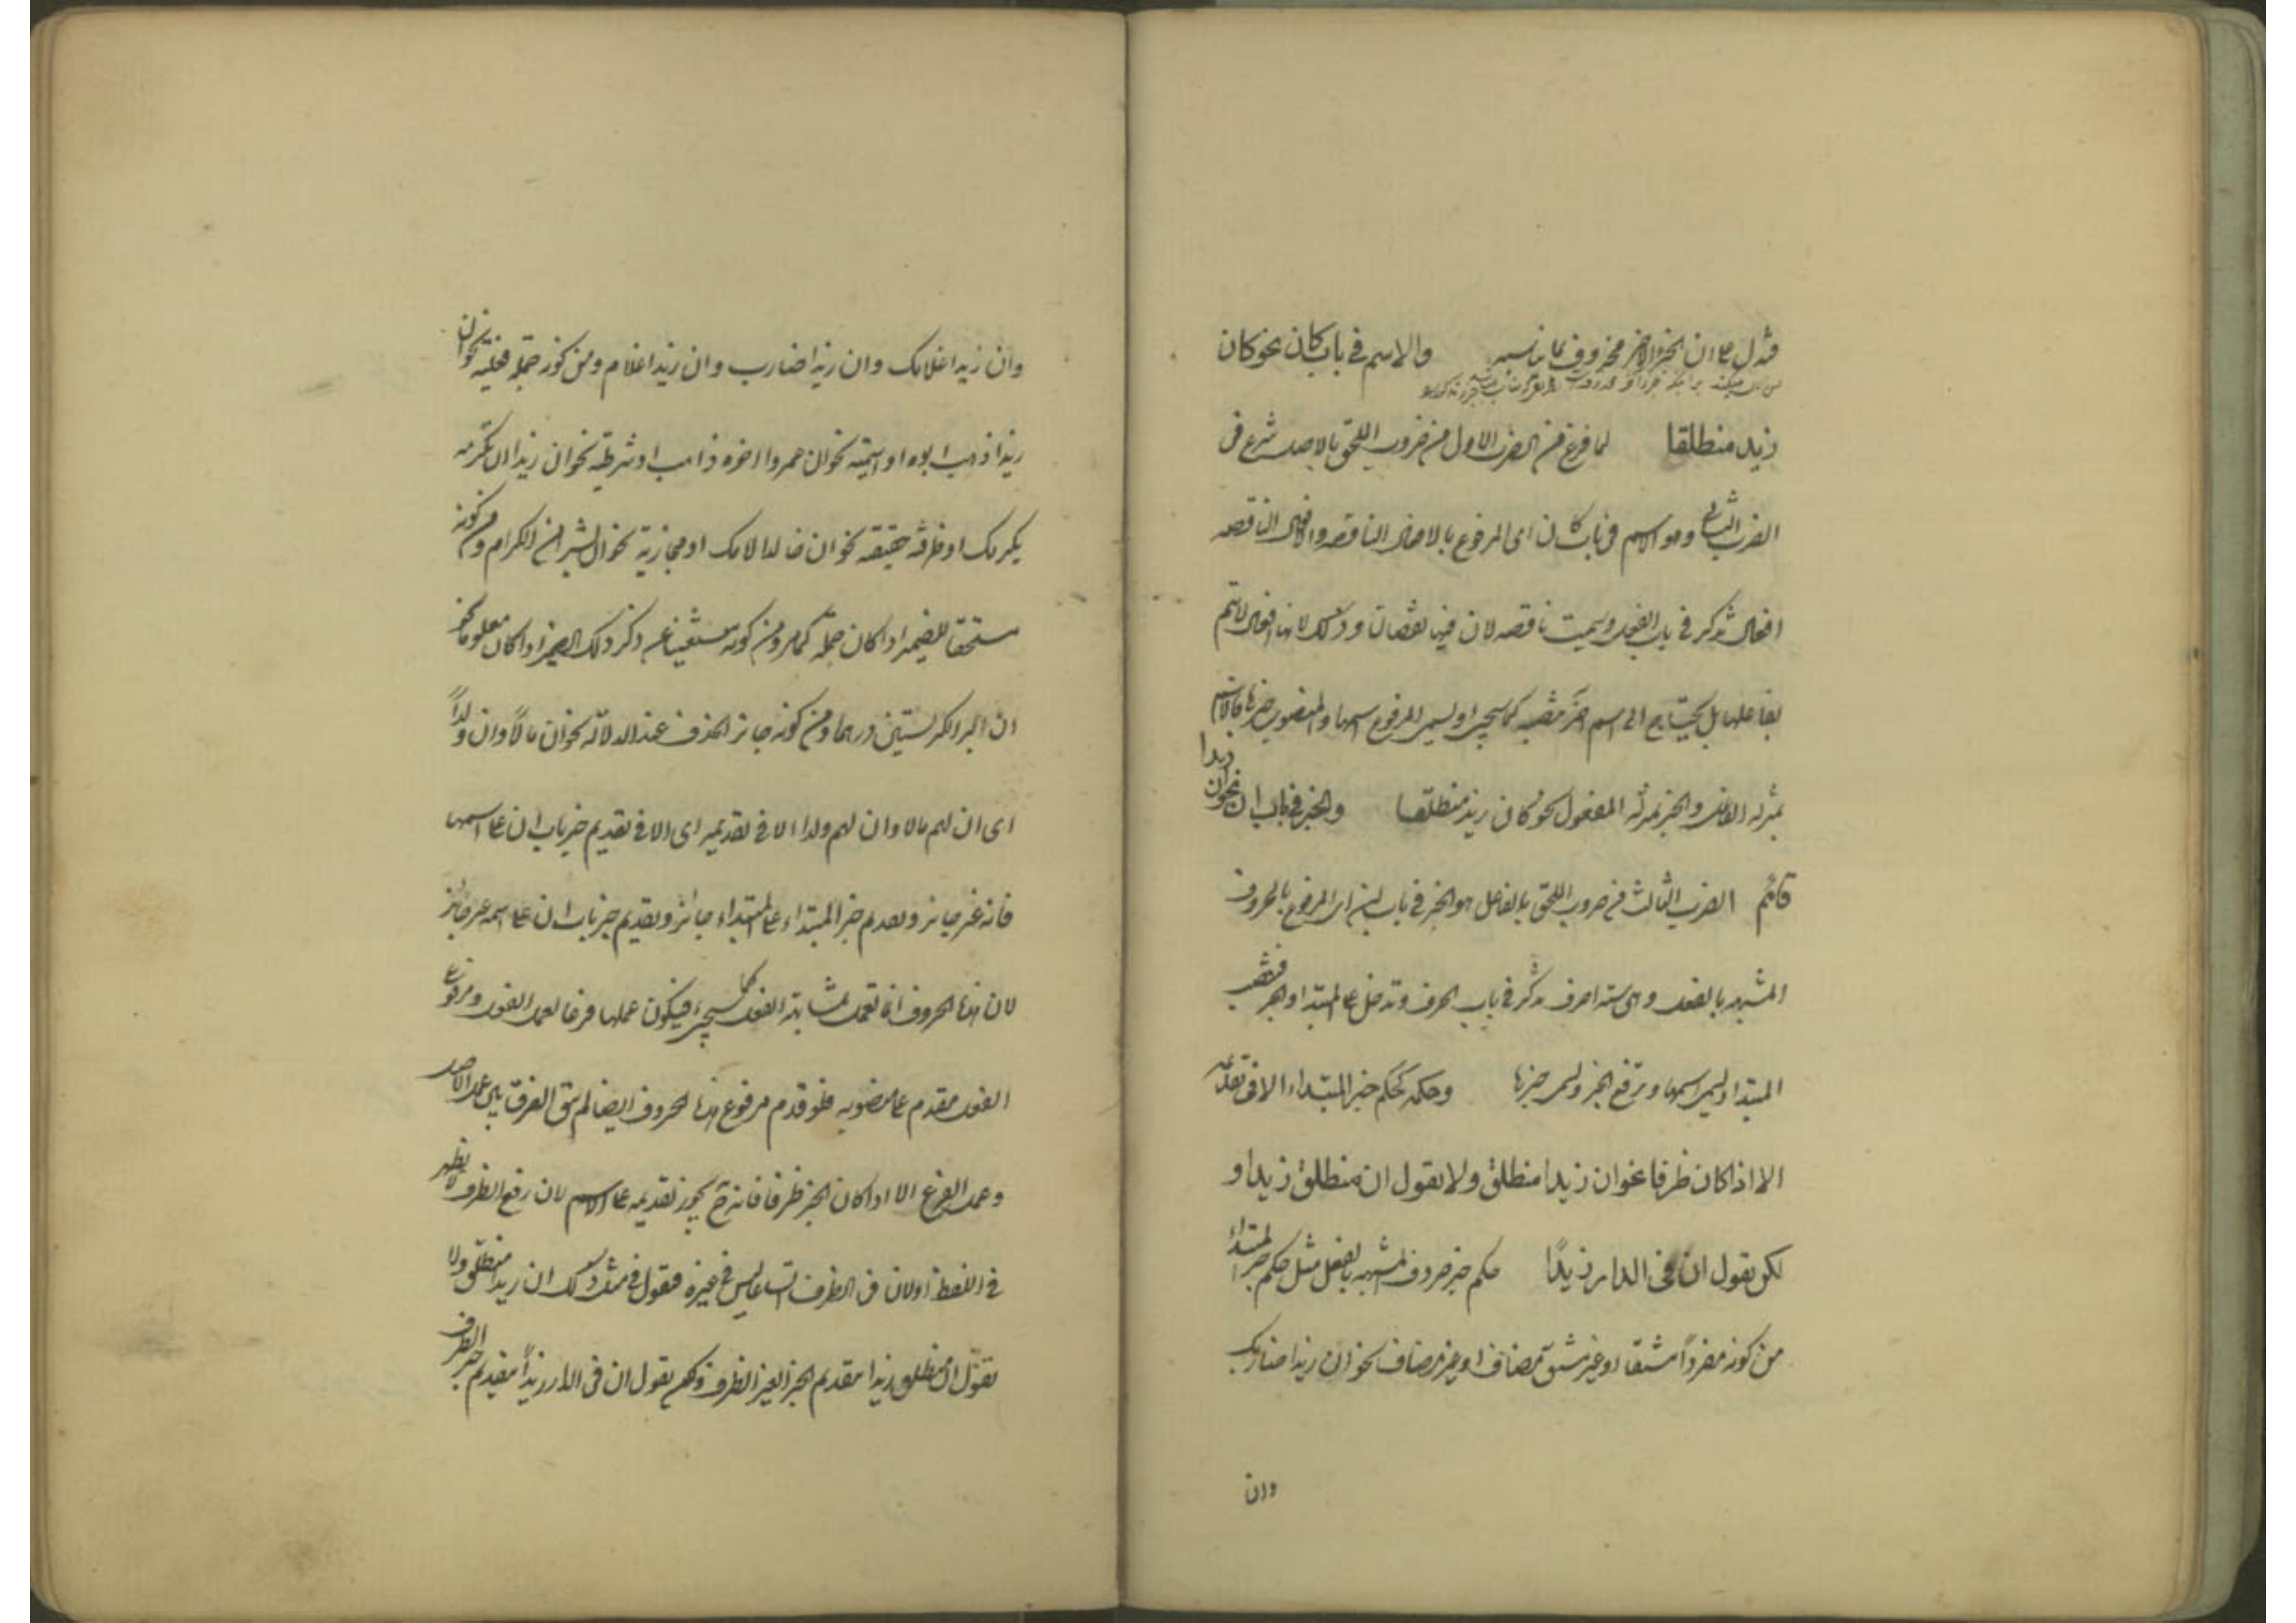 فدل على ان الخبر الاخر محذوف بما يناسبه والاسم في باب كان نحو كان
زيد منطلقا لما فرغ من الضرب الاول من ضروب الملحق بالاصل شرع في
الضرب الثاني وهو الاسم في باب كان اى المرفوع بالافعال الناقصه والافعال الناقصه
افعال تذكر في باب الفعل وسميت ناقصه لان فيها نقصان وذلك لانها افعال لا تتم
بفاعلها بل يحتاج الى اسم اخر تنصبه كما سيجئ ويسمى المرفوع اسمها والمنصوب خبرها فالاسم
بمنزله الفاعل والخبر بمنزله المفعول نحو كان زيد منطلقا والخبر في باب ان نحو ان زيدا
قائم الضرب الثالث من ضروب الملحق بالفاعل هو الخبر في باب ان اى المرفوع بالحروف
المشبهه بالفعل وهى سته احرف تذكر في باب الحرف وتدخل على المبتدا والخبر فتنصب
المبتدا ويسمى اسمها وترفع الخبر ويسمى خبرها وحكمه كحكم خبر المبتداء الا فى تقديمه
الا اذا كان ظرفا نحو ان زيدا منطلق ولا يقول ان منطلق زيدا و
لكن يقول ان فى الدار زيدًا حكم خبر حروف المشبهه بالفعل مثل حكم خبر المبتداء
من كونه مفرداً مشتقا او غير مشتق مضافا او غير مضاف نحو ان زيدا ضاربك
وان
وان زيدا غلامك وان زيدا ضارب وان زيدا غلام ومن كونه جمله فعليه نحو ان
زيدا ذهب ابوه او اسميته نحو ان عمروا اخوه ذاهب او شرطيه نحو ان زيدا ان تكرمه
يكرمك او ظرفيه حقيقه نحو ان خالدا امامك او مجازية نحو ان بشرا من الكرام ومن كونه
مستحقا للضمير اذا كان جملة كما مر ومن كونه مستغنيا عن ذكر ذلك الضمير اذا كان معلوما نحو
ان البر الكر بستين درهما ومن كونه جايز الحذف عند الدلالة نحو ان مالاً وان ولداً
اى ان لهم مالا وان لهم ولدا الا في تقديمه اى الا في تقديم خبر باب ان على اسمها
فانه غير جايز وتقديم خبر المبتداء على المبتداء جائز وتقديم خبر باب ان على اسمه غير جايز
لان هذا الحروف انما تعمل لمشابهة الفعل كما سيجئ فيكون عملها فرعا لعمل الفعل ومرفوع
الفعل مقدم على منصوبه فلو قدم مرفوع هذا الحروف ايضا لم يبق الفرق بين عمل الاصل
وعمل الفرع الا اذا كان الخبر ظرفا فانه ح يجوز تقديمه على الاسم لان رفع الظرف لا يظهر
في اللفظ اولان في الظرف اتساعا ليس في غيره فيقول في مثل ذلك ان زيدا منطلق ولا
يقول ان منطلق زيدا بتقديم الخبر الغير الظرف ولكن يقول ان فى الدار زيداً بتقديم خبر الظرف